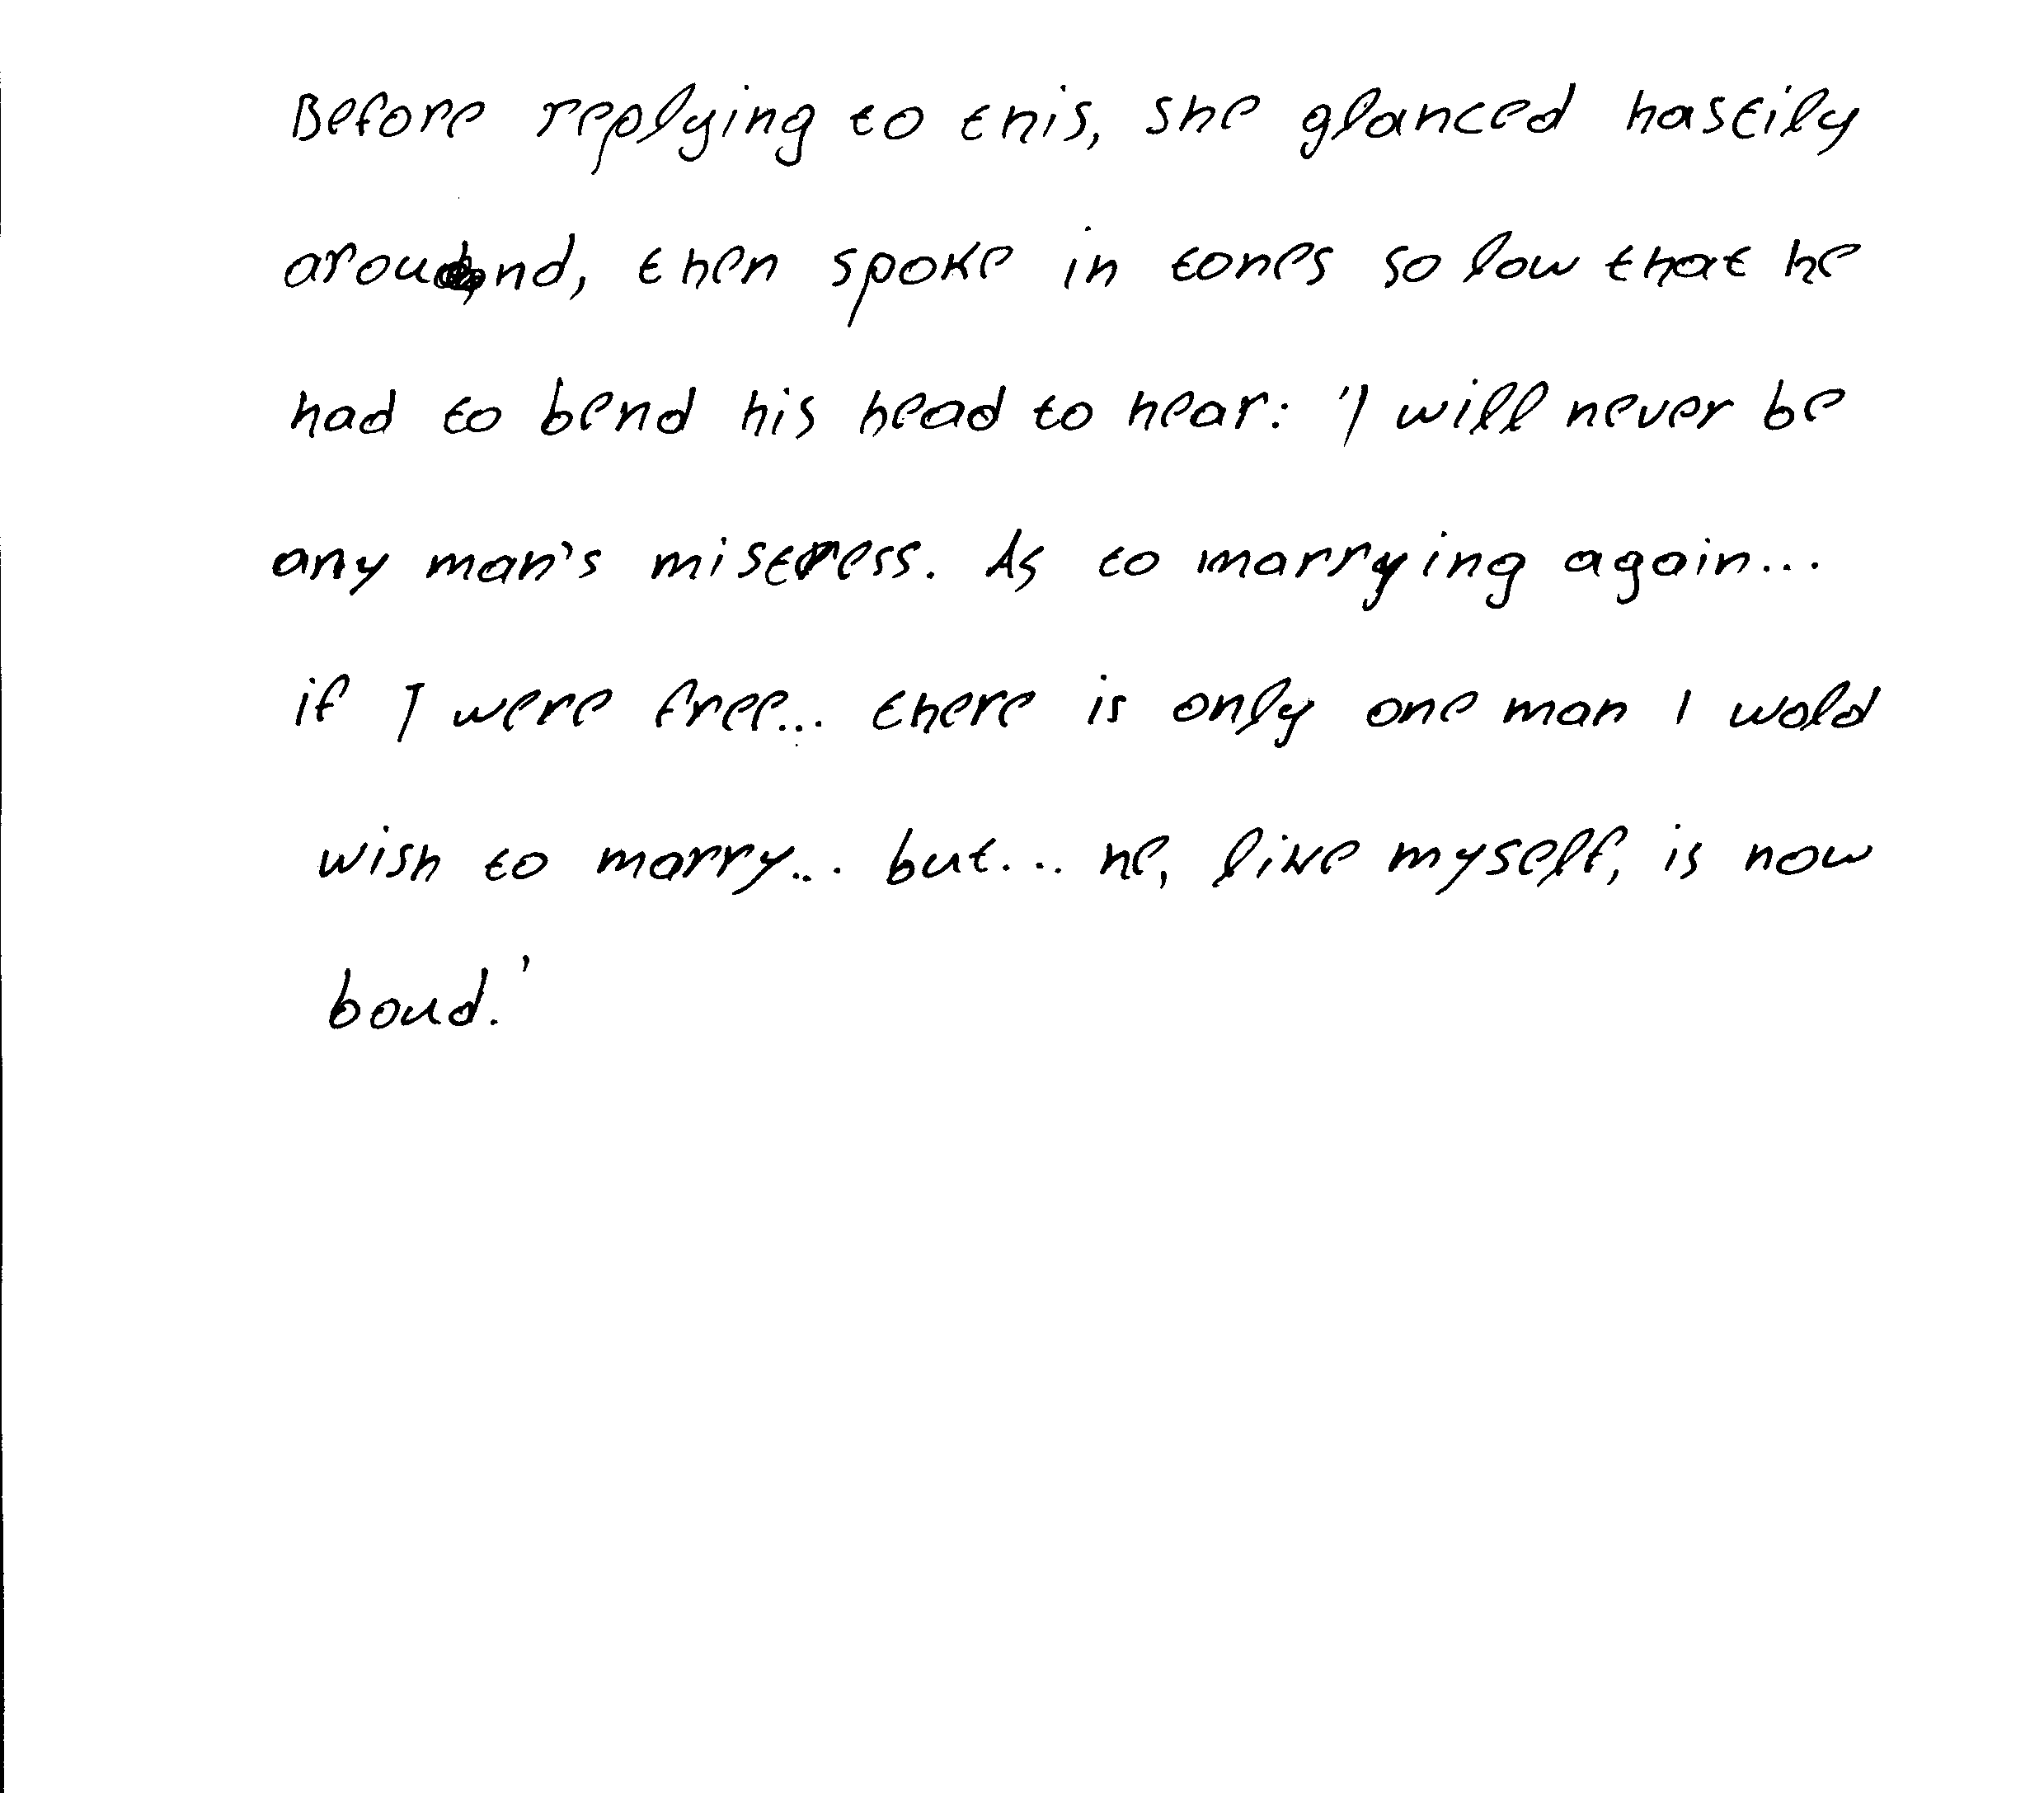 Before replying to this, she glanced hastily
around, then spoke in tones so low that he
had to bend his head to hear: 'I will never be
any man's mistress. As to marrying again...
if I were free... there is only one man I wold
wish to marry... but... he, like myself, is now
boud.'